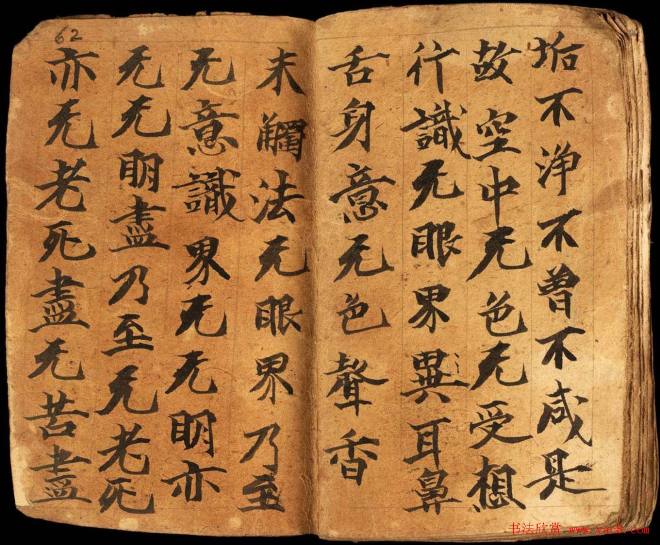 垢不浄不曾不咸是
故空中无色无受想
行識无眼界異耳鼻
舌身意无色聲香
未觸法无眼界乃至
无意識界无无明亦
无无明盡乃至无老死
亦无老死盡无苦盡
62
书法欣赏